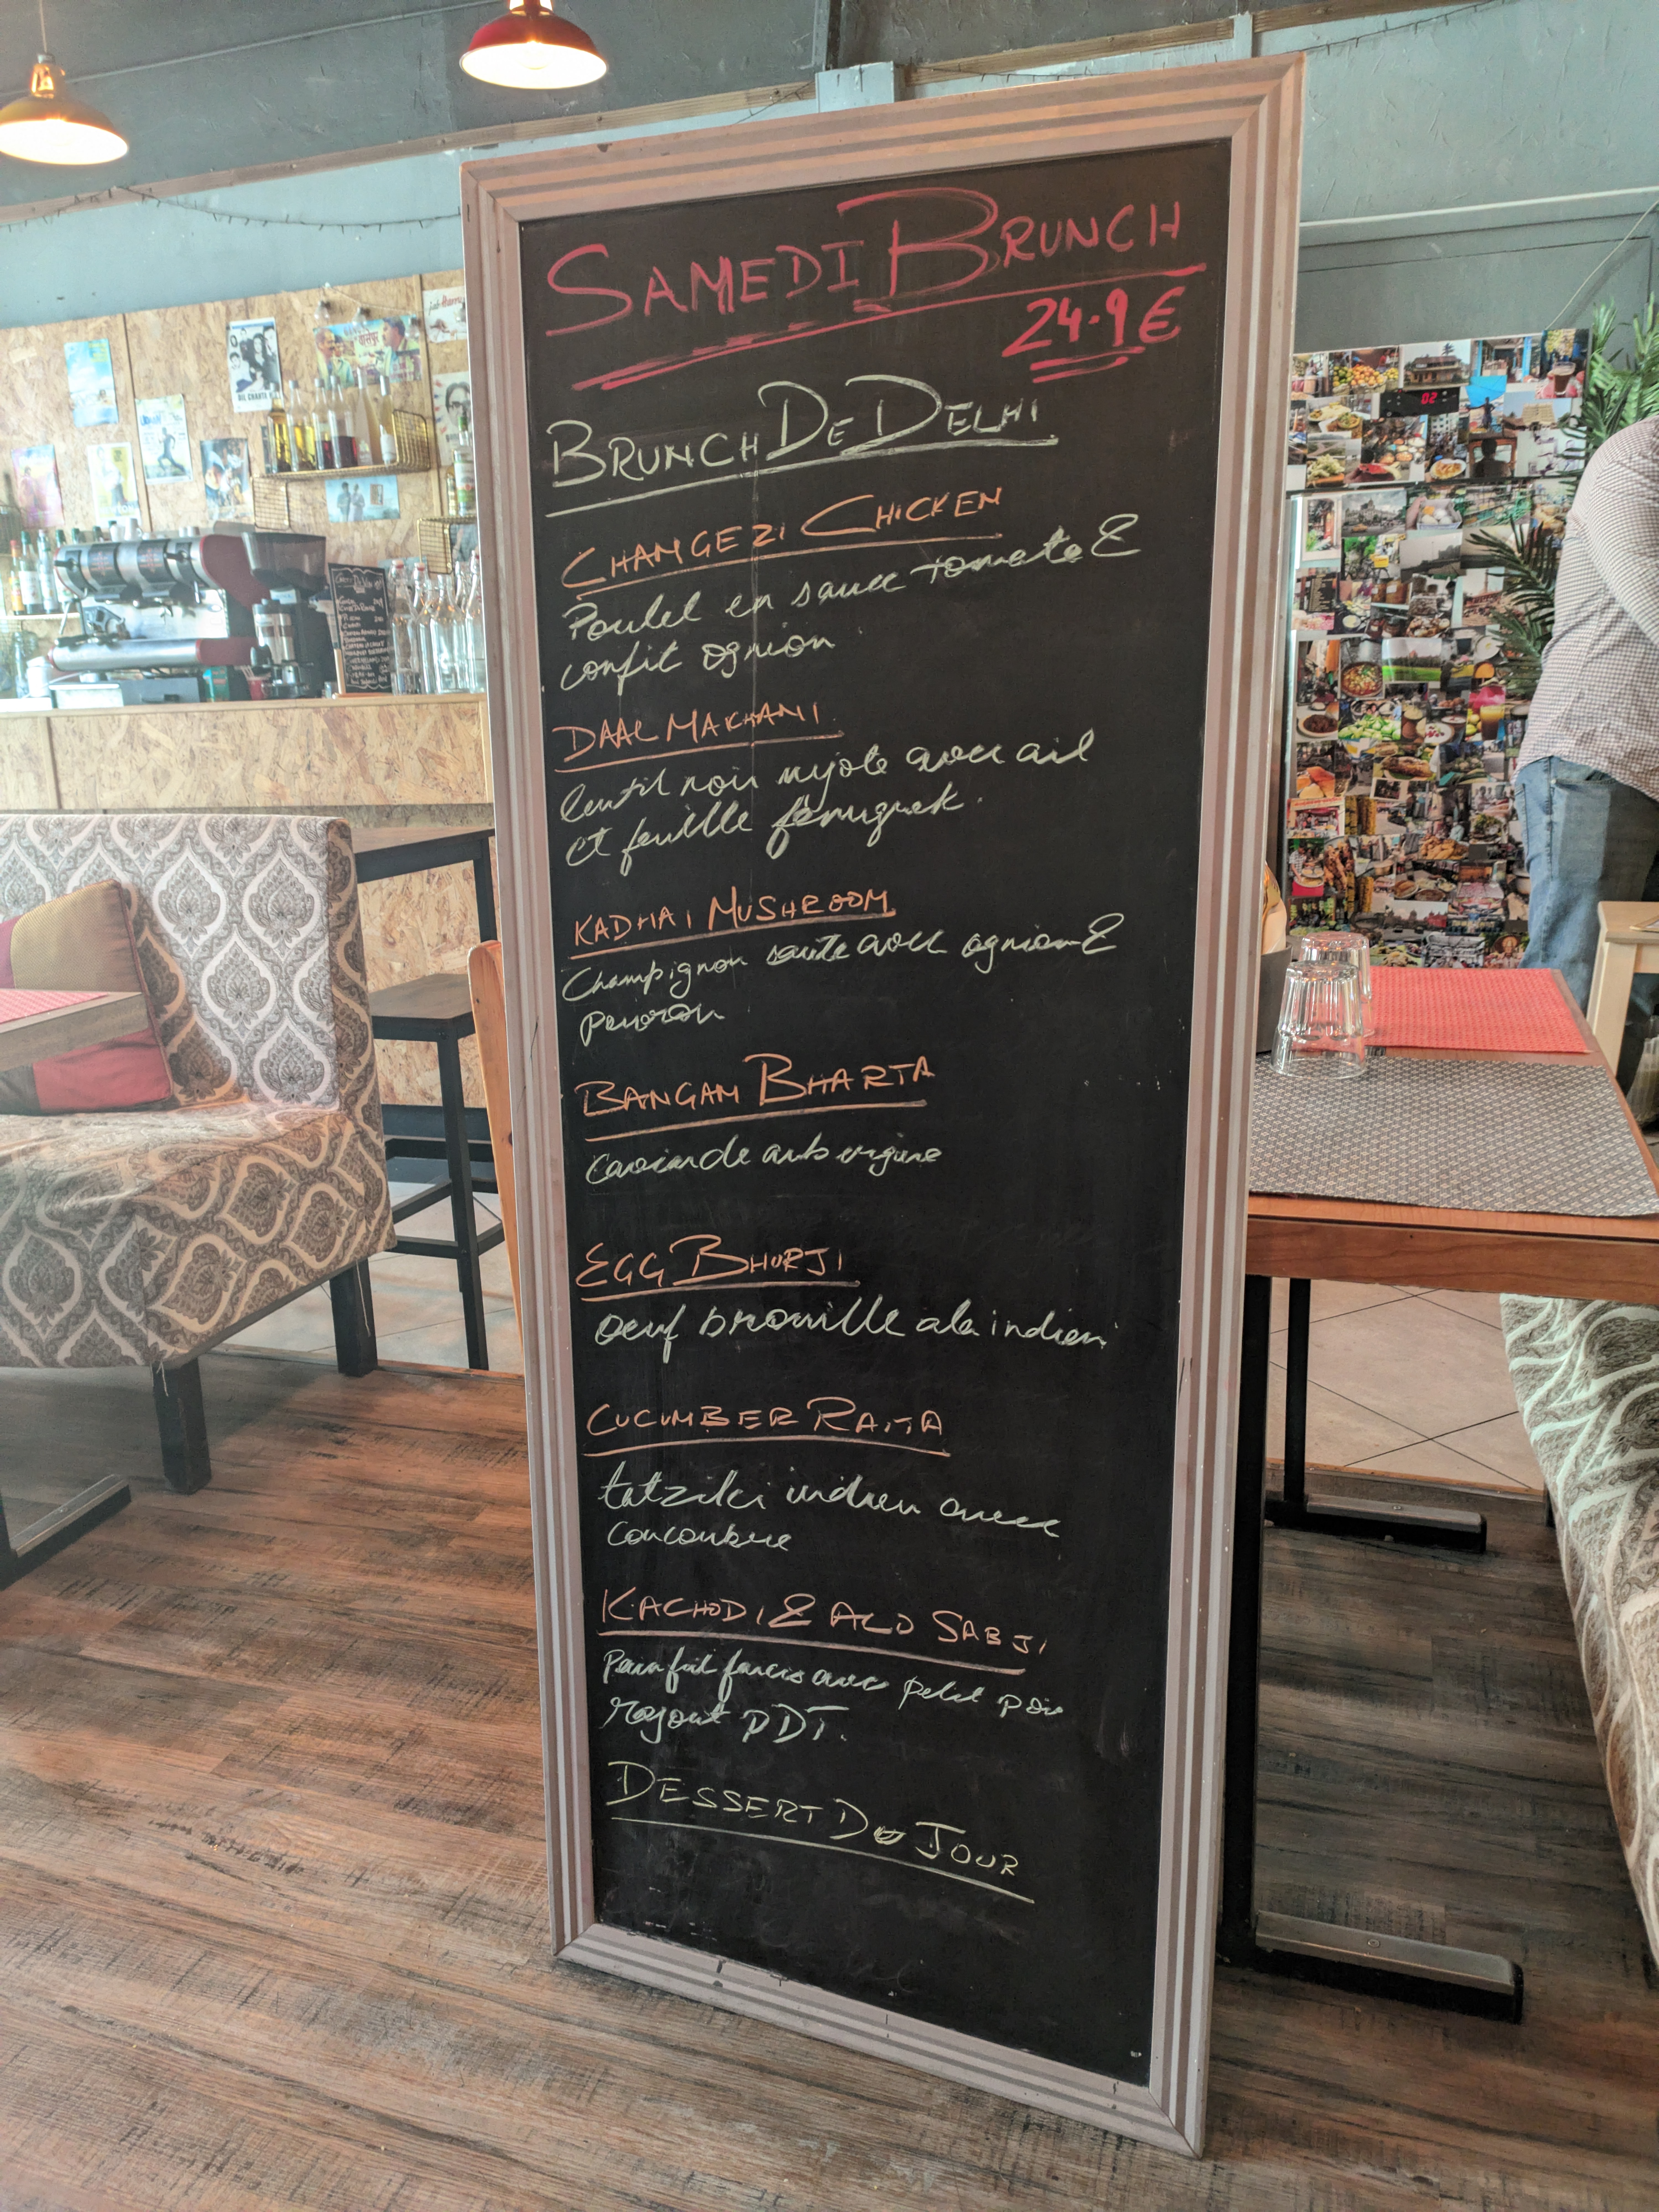 SAMEDI BRUNCH
24.9 €
BRUNCH DE DELHI
CHANGEZI CHICKEN
Poulet en sauce tomate &
confit ognion
DAAL MAKHANI
lentil noir mijote avec ail
et feuille fenugrek.
KADHAI MUSHROOM
Champignon saute avec ognion &
poivron
BANGAN BHARTA
Caviar de aubergine
EGG BHURJI
oeuf brouille a la indien
CUCUMBER RAITA
tatziki indien avec
Concoubre
KACHODI & ALO SABJI
Pain frit farcis avec petit pois
ragout PDT.
DESSERT DU JOUR
02